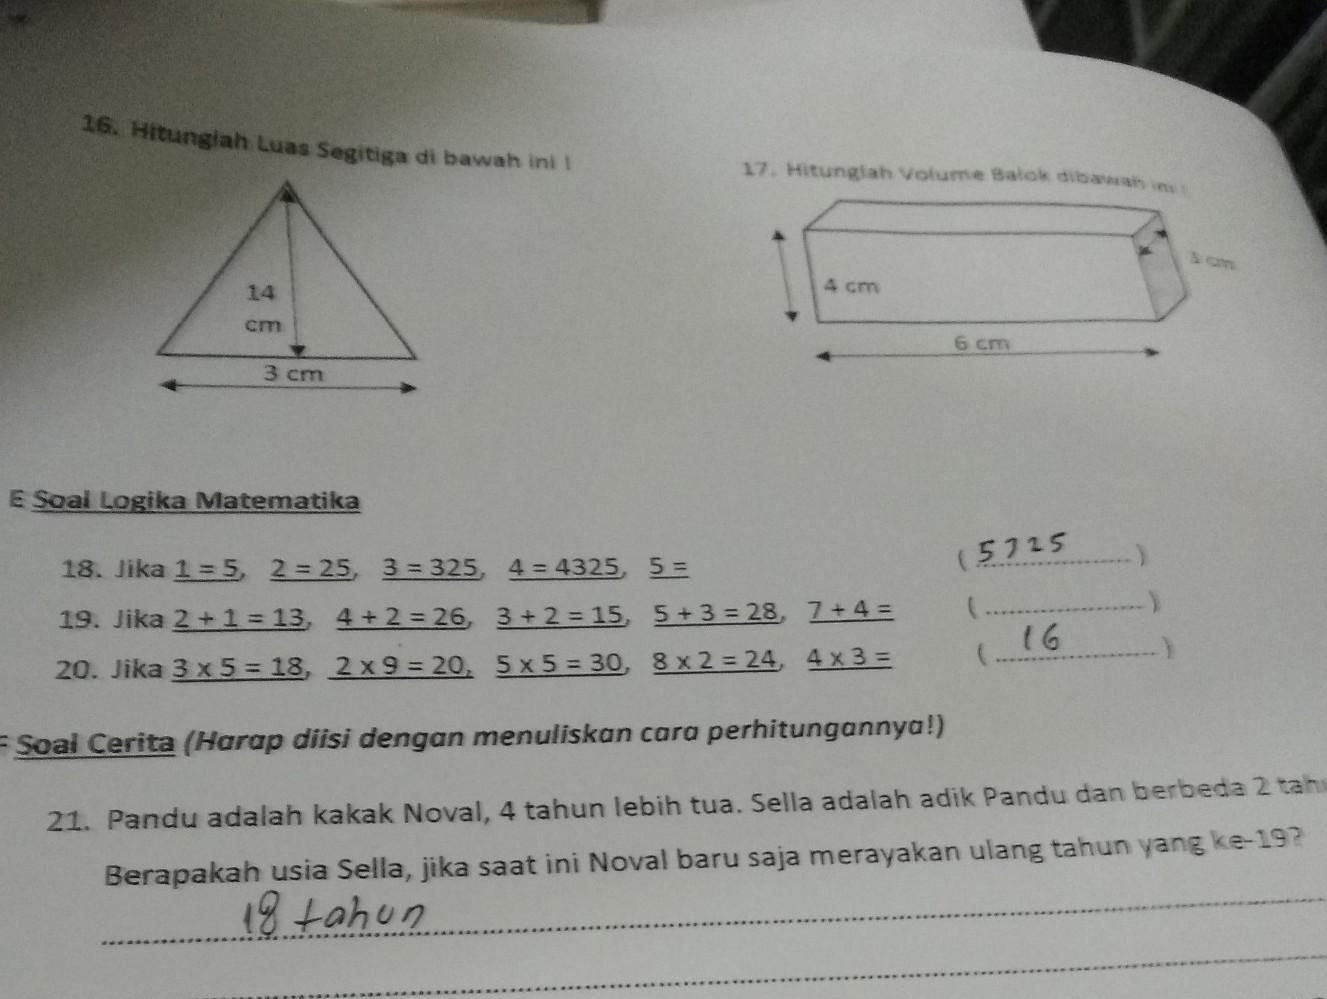 16. Hitunglah Luas Segitiga di bawah ini !
17. Hitunglah Volume Balok dibawah ini !
14
cm
3 cm
4 cm
3 cm
6 cm
E Soal Logika Matematika
18. Jika 1 = 5, 2 = 25, 3 = 325, 4 = 4325, 5 = (5325)
19. Jika 2 + 1 = 13, 4 + 2 = 26, 3 + 2 = 15, 5 + 3 = 28, 7 + 4 = (..................)
20. Jika 3 x 5 = 18, 2 x 9 = 20, 5 x 5 = 30, 8 x 2 = 24, 4 x 3 = (16)
F Soal Cerita (Harap diisi dengan menuliskan cara perhitungannya!)
21. Pandu adalah kakak Noval, 4 tahun lebih tua. Sella adalah adik Pandu dan berbeda 2 tahu
Berapakah usia Sella, jika saat ini Noval baru saja merayakan ulang tahun yang ke-19?
18 tahun